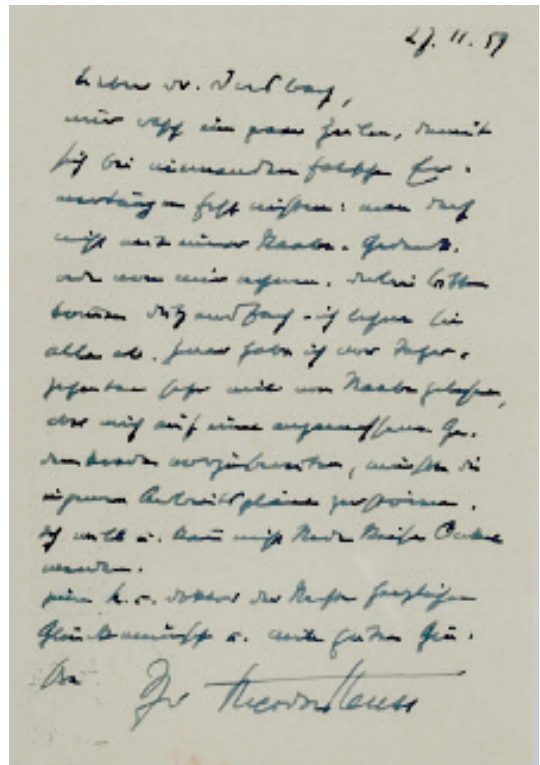 27.11.59
Lieber Dr.
nur rasch ein paar Zeilen, damit
sich bei niemanden falsche Er-
wartungen fest nisten: man darf
nicht mit einer Raabe-Gedenk-
rede von mir rechnen. bitten
kommen dutzendfach - ich lehne sie
alle ab. Zwar habe ich vor Jahr-
zehnten sehr viel von Raabe gelesen,
aber mich auf eine angemessene Ge-
denkrede vorzubereiten, müßte die
eigenen Arbeitspläne zerstören.
Ich will u. kann nicht Rede Reise Onkel
werden.
Zum h.c. Doktor der Rechte herzlichen
Glückwunsch u. mit guten Grü-
ßen
Ihr Theodor Heuss